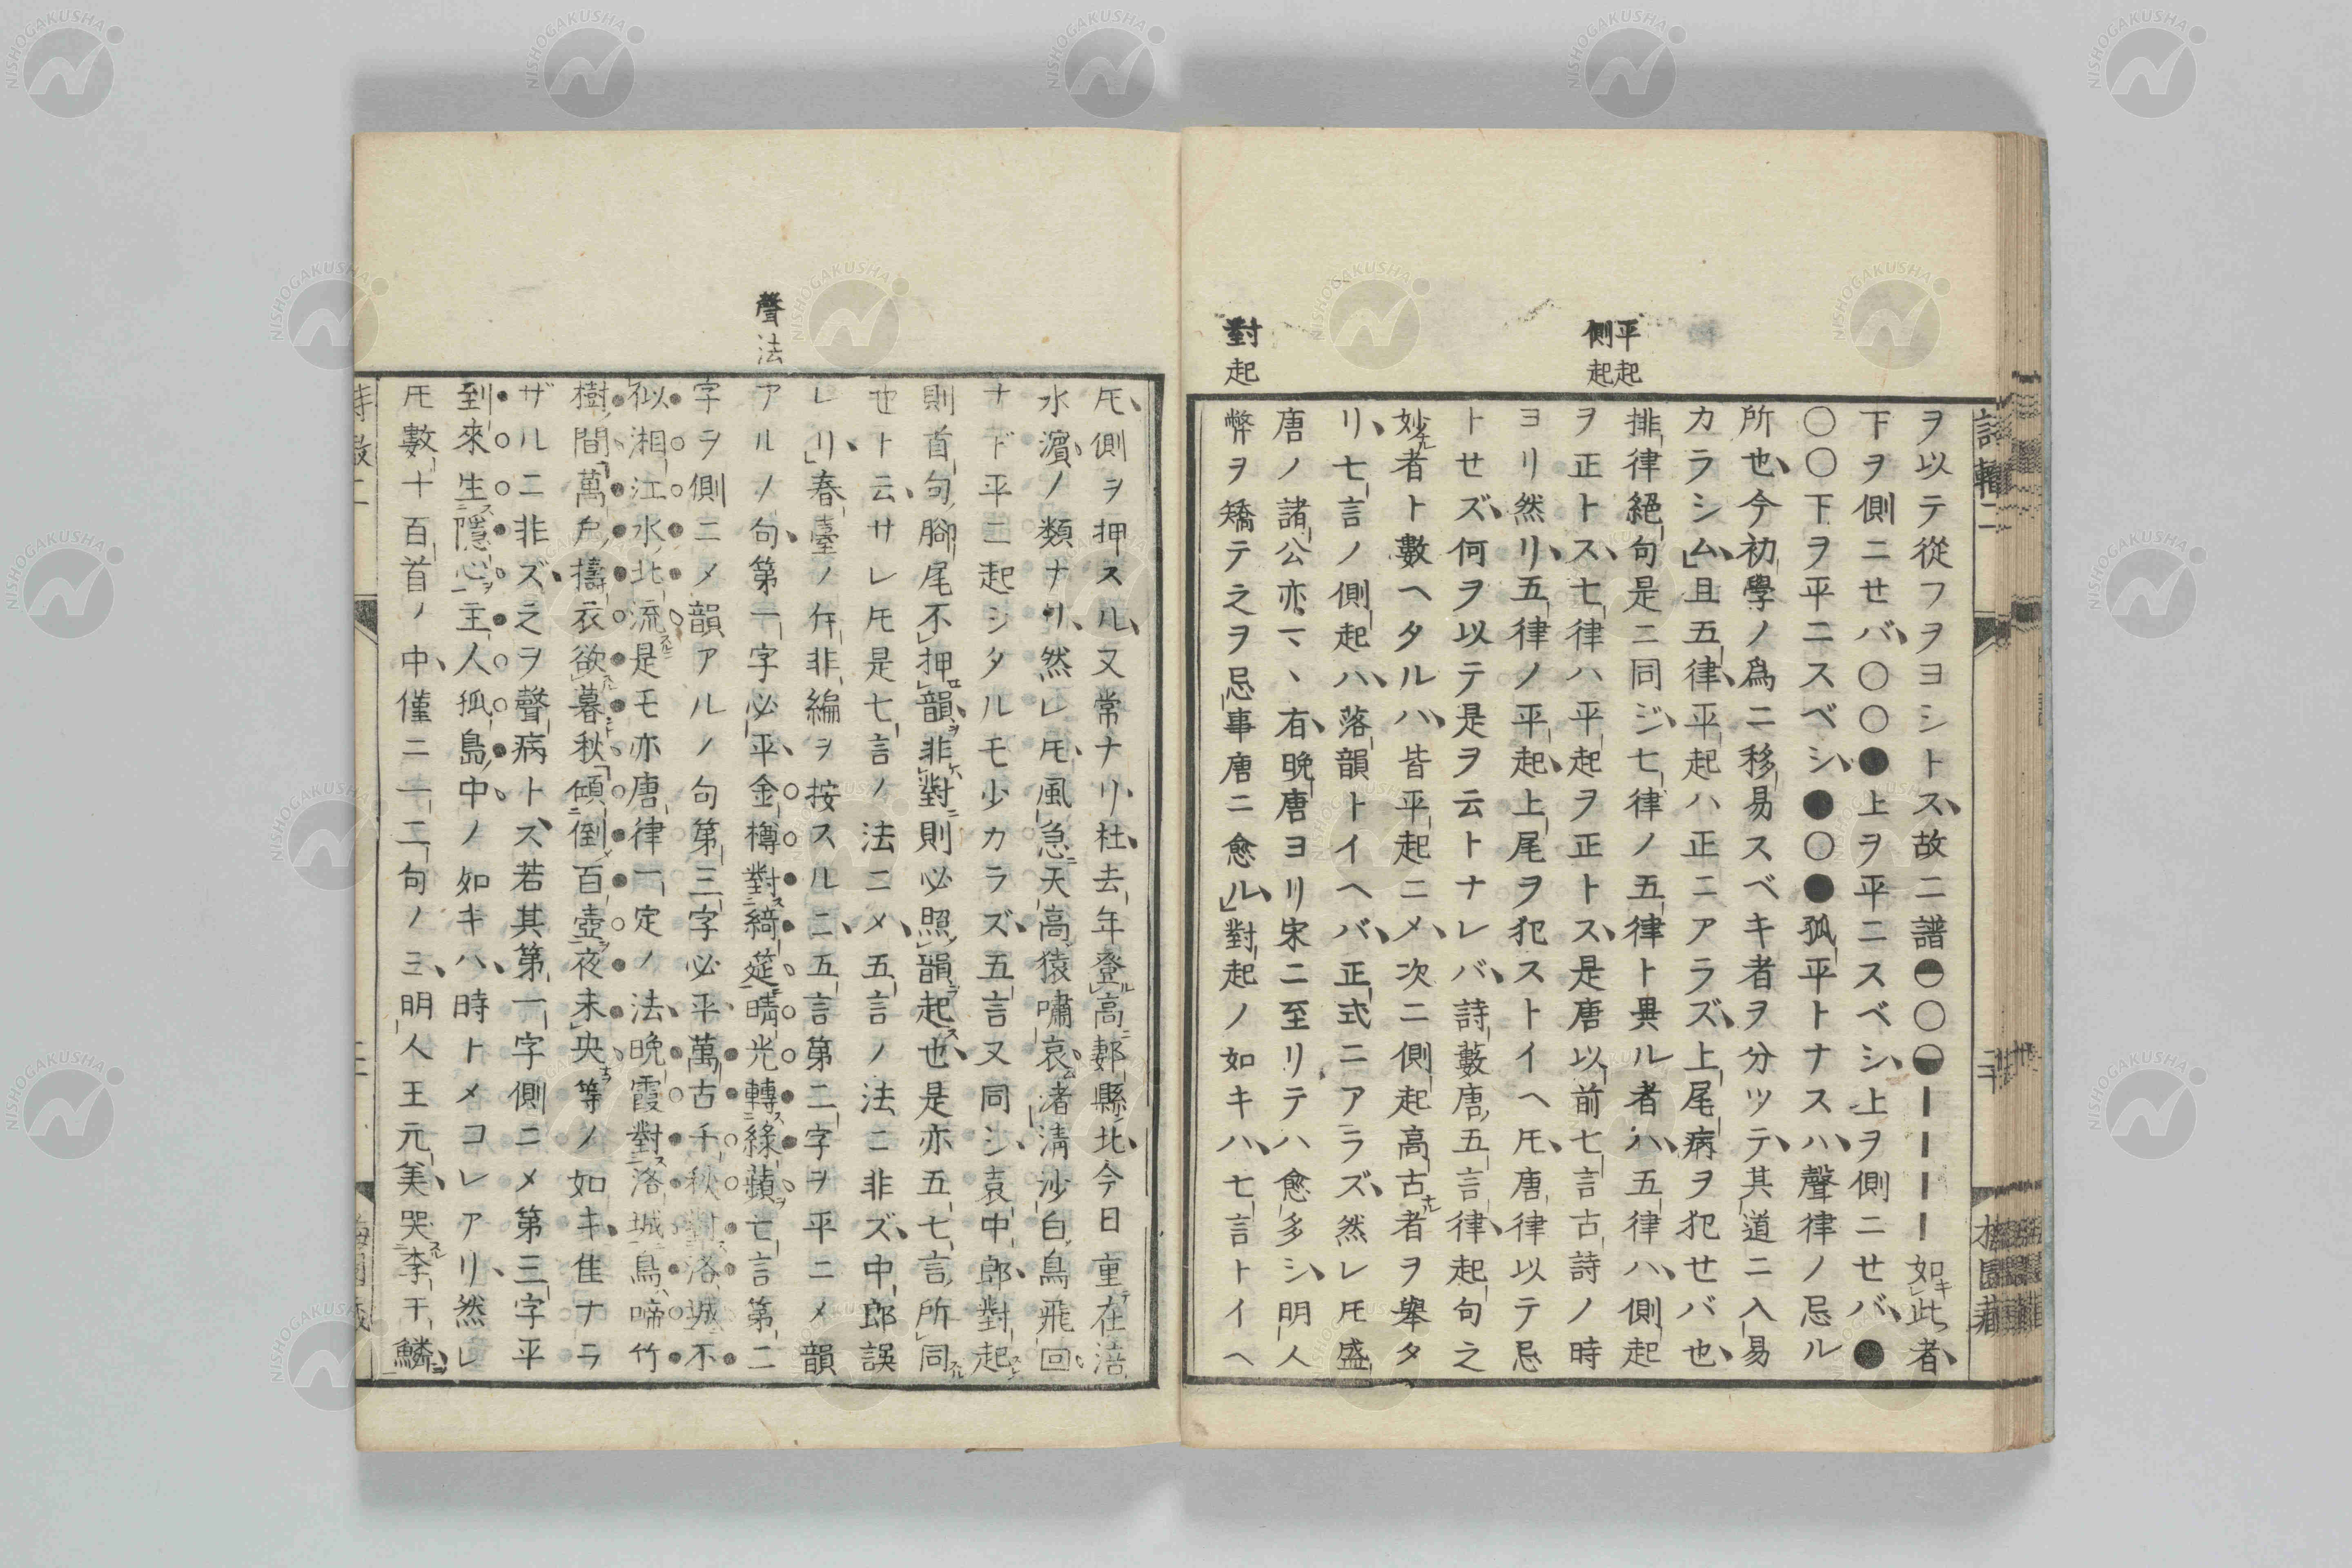 平起
側起
對起
ヲ以テ從フヲヨシトス、故ニ譜◓〇◒ーーーー如キ此ノ者、
下ヲ側ニせバ、〇〇●上ヲ平ニスベシ、上ヲ側ニせバ、●
〇〇下ヲ平ニスベシ、●〇●孤平トナスハ、聲律ノ忌ル
所也、今初學ノ爲ニ移易スベキ者ヲ分ツテ、其道ニ入易
カラシム、且五律、平起ハ正ニアラズ、上尾病ヲ犯せバ也、
排律絕句是ニ同ジ、七律ノ五律ト異ル者ハ、五律ハ、側起
ヲ正トス、七律ハ平起ヲ正トス、是唐以前七言古詩ノ時
ヨリ然リ、五律ノ平起、上尾ヲ犯ストイヘ𪜈、唐律以テ忌
トせズ、何ヲ以テ是ヲ云トナレバ、詩藪唐五言律、起句之
妙ナル者ト數ヘタルハ、皆平起ニメ、次ニ側起高古ナル者ヲ舉タ
リ、七言ノ側起ハ、落韻トイヘバ、正式ニアラズ、然レ𪜈盛
唐ノ諸公亦一、有、晚唐ヨリ宋ニ至リテハ愈多シ、明人
弊ヲ矯テ之ヲ忌事唐ニ愈ル、對起ノ如キハ、七言トイヘ
聲法
𪜈、側ヲ押スル、又常ナリ、杜去年登ル高郪縣ノ北、今日重テ在涪
水濱ノ類ナリ、然レ𪜈、風急ニ天高猿嘯哀、渚淸沙白鳥飛回
ナド平ニ起シタルモ少カラズ、五言又同シ、袁中郎、對起
則首句腳尾不押韻ヲ、非對ニ則必照韻起ス也、是亦五七言所同スル
也ト云、サレ𪜈是七言ノ法ニメ、五言ノ法ニ非ズ、中郎誤
レリ、春臺ノ斥非編ヲ按スルニ、五言第二字ヲ平ニメ韻
アルノ句、第一字必平、金樽對綺筵、晴光轉綠蘋、七言第二
字ヲ側ニメ韻アルノ句第三字必平、萬古千秋對洛城、不
似湘江水北流、是モ亦唐律一定ノ法、晚霞對洛城、鳥啼竹
樹間、萬戶擣衣欲暮秋、傾倒百壺夜未央等ノ如キ、隹ナラ
ザルニ非ズ、之ヲ聲病トス、若其第一字側ニメ第三字平
到來生隱心、主人孤島中ノ如キハ、時トメコレアリ、然レ
𪜈數十百首ノ中、僅ニ一二句ノミ、明人王元美、哭李于鱗